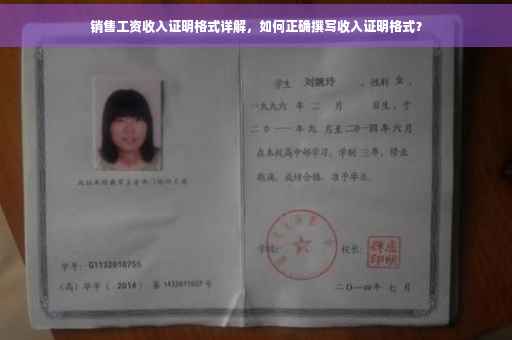 销售工资收入证明格式详解，如何正确撰写收入证明格式？
学生 刘婉玲 ，性别 女 ，
一九九六 年 二 月 日生，于
二〇一一 年 九 月至 二〇一四 年 六 月
在本校高中部学习，学制 三 年，修业
期满，成绩合格，准予毕业。
学号： G1132010755
(高) 毕字 ( 2014 ) 第 1432011027 号
学校：
校长：
二〇一四年 七 月